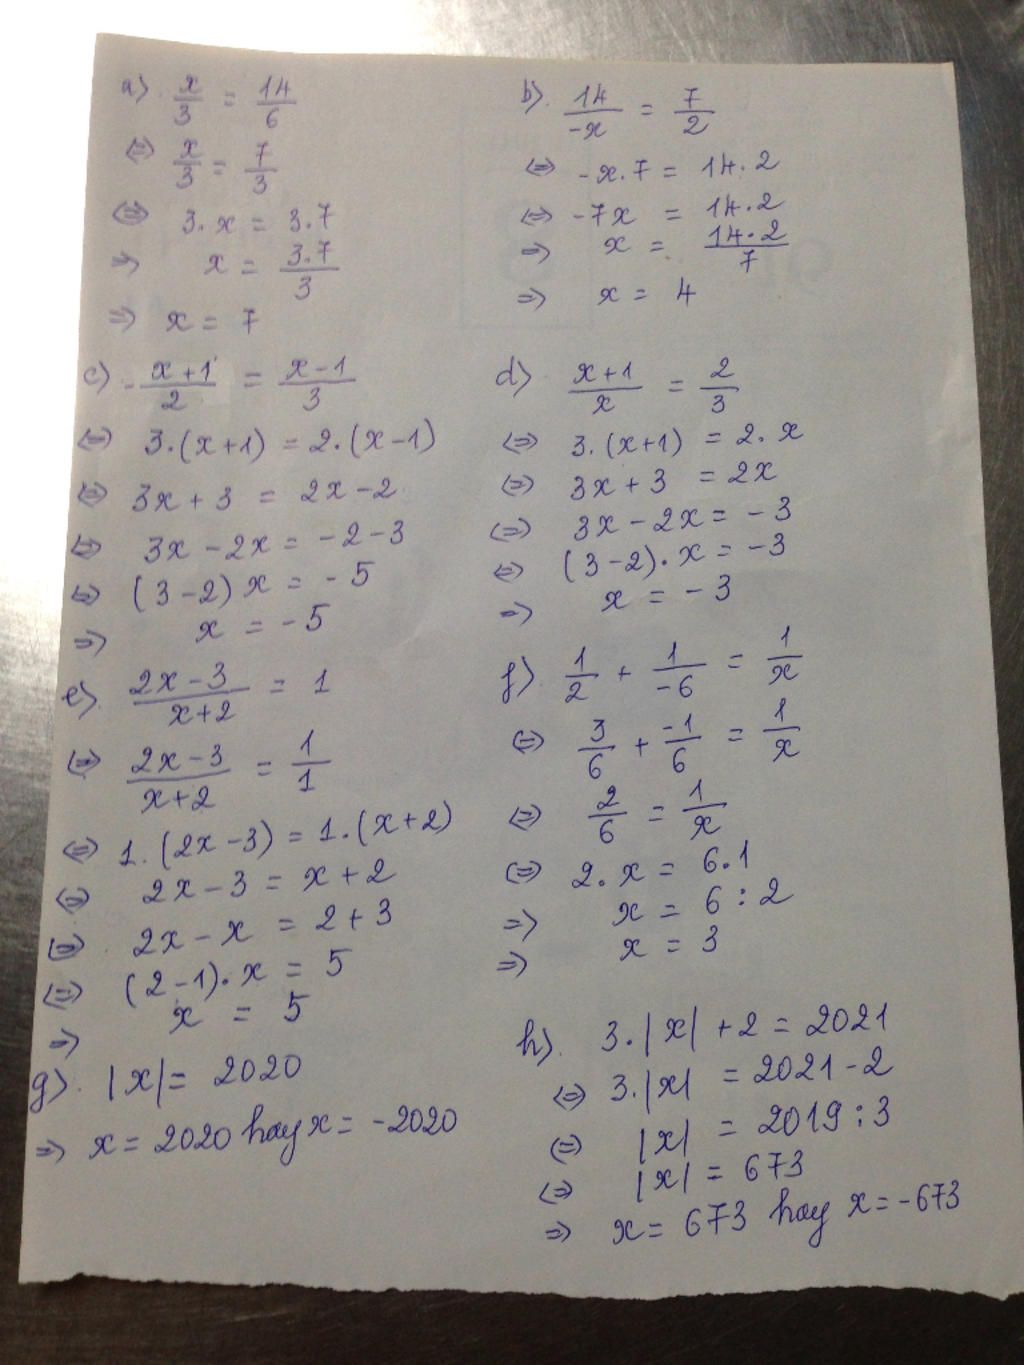 a) x/3 = 14/6
⇔ x/3 = 7/3
⇔ 3.x = 3.7
⇒ x = 3.7/3
⇒ x = 7
b) 14/-x = 7/2
⇔ -x.7 = 14.2
⇔ -7x = 14.2
⇒ x = 14.2/7
⇒ x = 4
c) x+1/2 = x-1/3
⇔ 3.(x+1) = 2.(x-1)
⇔ 3x+3 = 2x-2
⇔ 3x-2x = -2-3
⇔ (3-2)x = -5
⇒ x = -5
d) x+1/x = 2/3
⇔ 3.(x+1) = 2.x
⇔ 3x+3 = 2x
⇔ 3x-2x = -3
⇔ (3-2).x = -3
⇒ x = -3
e) 2x-3/x+2 = 1
⇔ 2x-3/x+2 = 1/1
⇔ 1.(2x-3) = 1.(x+2)
⇔ 2x-3 = x+2
⇔ 2x-x = 2+3
⇔ (2-1).x = 5
⇒ x = 5
f) 1/2 + 1/-6 = 1/x
⇔ 3/6 + -1/6 = 1/x
⇔ 2/6 = 1/x
⇔ 2.x = 6.1
⇒ x = 6:2
⇒ x = 3
g) |x| = 2020
⇒ x = 2020 hay x = -2020
h) 3.|x| + 2 = 2021
⇔ 3.|x| = 2021-2
⇔ |x| = 2019:3
⇔ |x| = 673
⇒ x = 673 hay x = -673